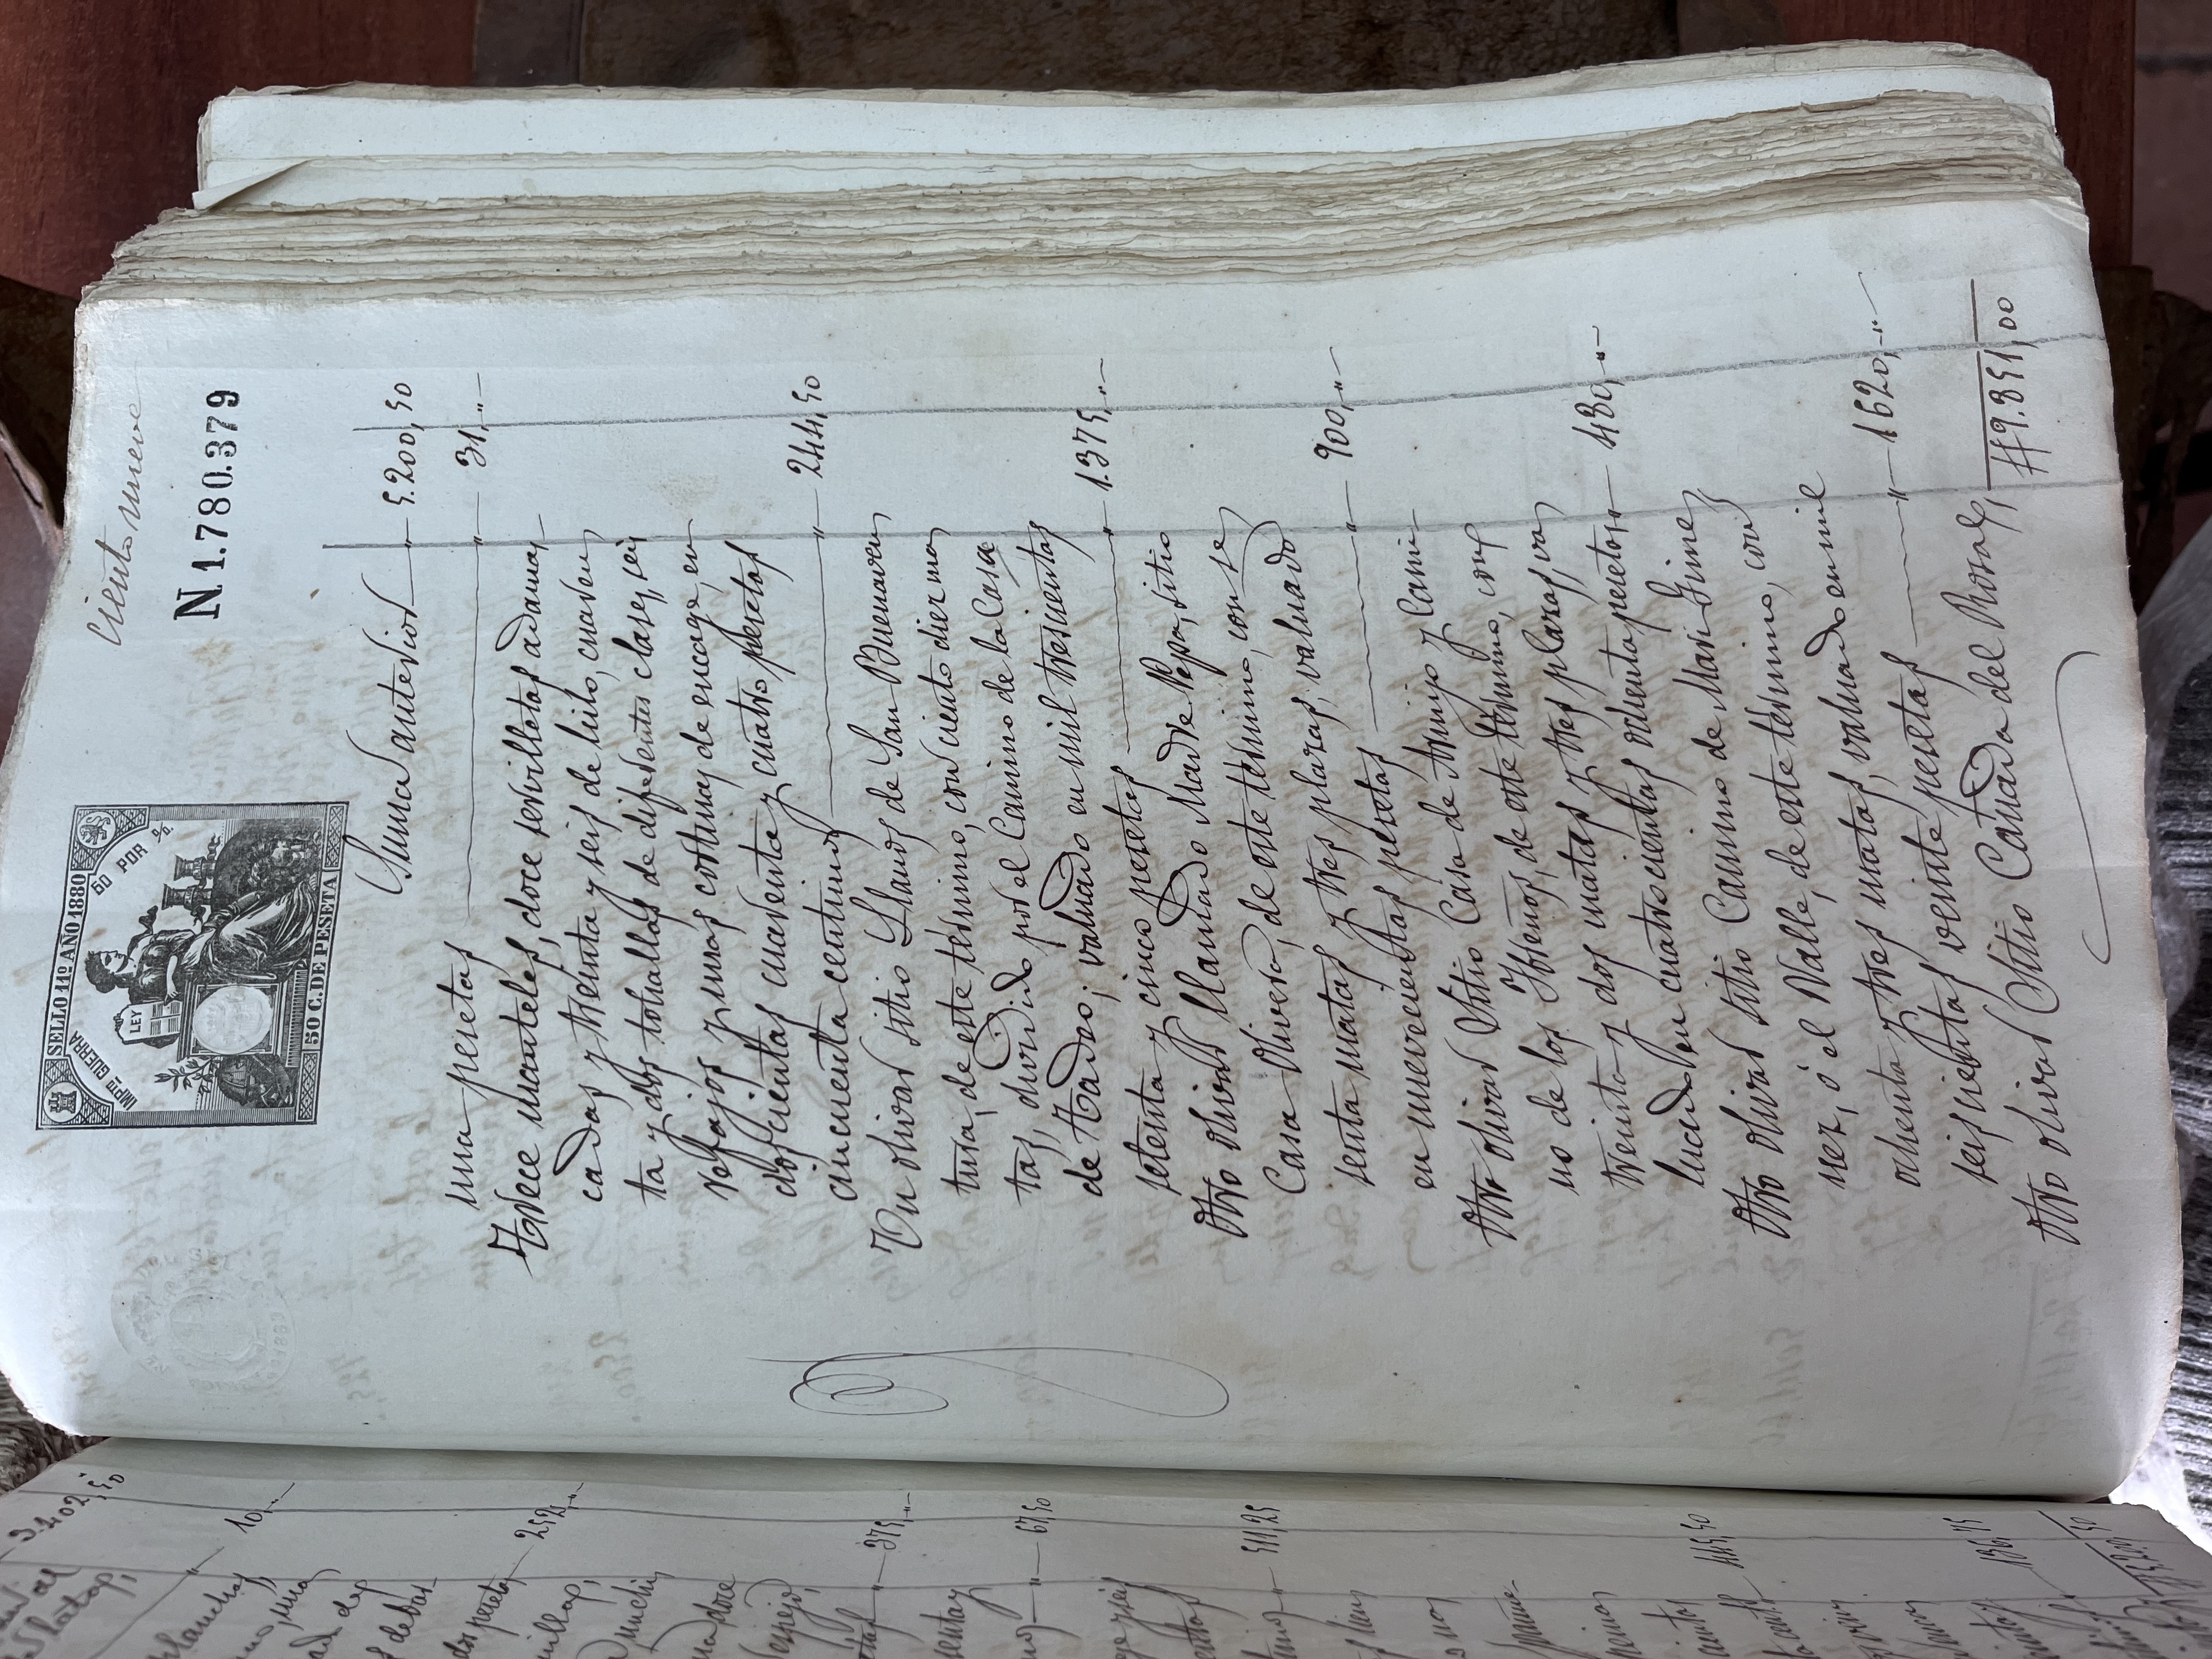 Ciento nueve
N.1.780.379
SELLO 11º AÑO 1880
IMPTO GUERRA
50 POR %
LEY
50 C. DE PESETA
Suma anterior " 5.200,50
una pesetas " 31,"
Trece manteles, doce servilletas adamas
cadas y treinta y seis de hilo, cuaren
ta y dos tohallas de diferentes clases, seis
refajos y unas cortinas de encage, en
doscientas cuarenta y cuatro pesetas
cincuenta centimos " 244,50
Un olivar sitio Llanos de San Buenaven
tura, de este término, con ciento diez ma
tas, dividido por el Camino de la Casa
de Tadeo; valuado en mil trescientas
setenta y cinco pesetas " 1.375,"
Otro olivar llamado Madre Pepa, sitio
Casa Olivera, de este término, con se
senta matas y tres plazas, valuado
en nuevecientas pesetas " 900,"
Otro olivar Sitio Casa de Armijo y Cami
no de los Ybreños, de este término, con
treinta y dos matas y tres plazas, va
luado en cuatrocientas ochenta pesetas " 480,"
Otro olivar sitio Camino de Mari-Gime
nez, ó el Valle, de este término, con
ochenta y tres matas, valuado en mil
seiscientas veinte pesetas " 1620,"
Otro olivar Sitio Cañada del Rosal, #9.851,00
3.402,50
10,"
252,"
375,"
67,50
511,25
445,50
136,75
5.200,50